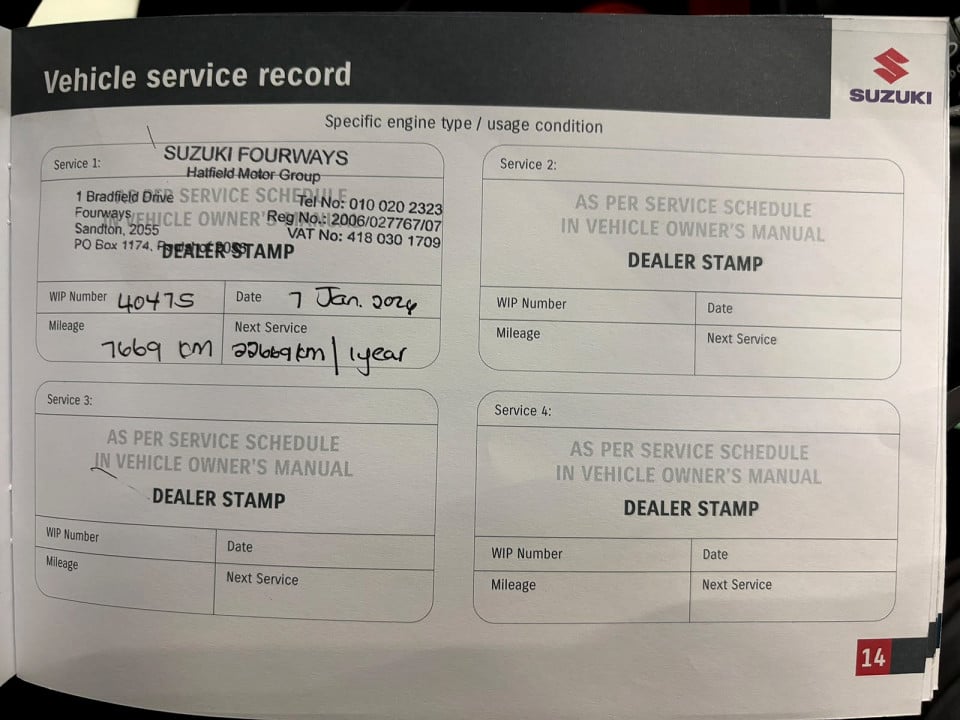 Vehicle service record
SUZUKI
Specific engine type / usage condition
Service 1:
SUZUKI FOURWAYS
Hatfield Motor Group
AS PER SERVICE SCHEDULE
IN VEHICLE OWNER'S MANUAL
1 Bradfield Drive
Fourways
Sandton, 2055
PO Box 1174,
Tel No: 010 020 2323
Reg No.: 2006/027767/07
VAT No: 418 030 1709
DEALER STAMP
WIP Number 40475
Date 7 Jan.
Mileage 7669 km
Next Service 22669km / 1year
Service 2:
AS PER SERVICE SCHEDULE
IN VEHICLE OWNER'S MANUAL
DEALER STAMP
WIP Number
Date
Mileage
Next Service
Service 3:
AS PER SERVICE SCHEDULE
IN VEHICLE OWNER'S MANUAL
DEALER STAMP
WIP Number
Date
Mileage
Next Service
Service 4:
AS PER SERVICE SCHEDULE
IN VEHICLE OWNER'S MANUAL
DEALER STAMP
WIP Number
Date
Mileage
Next Service
14